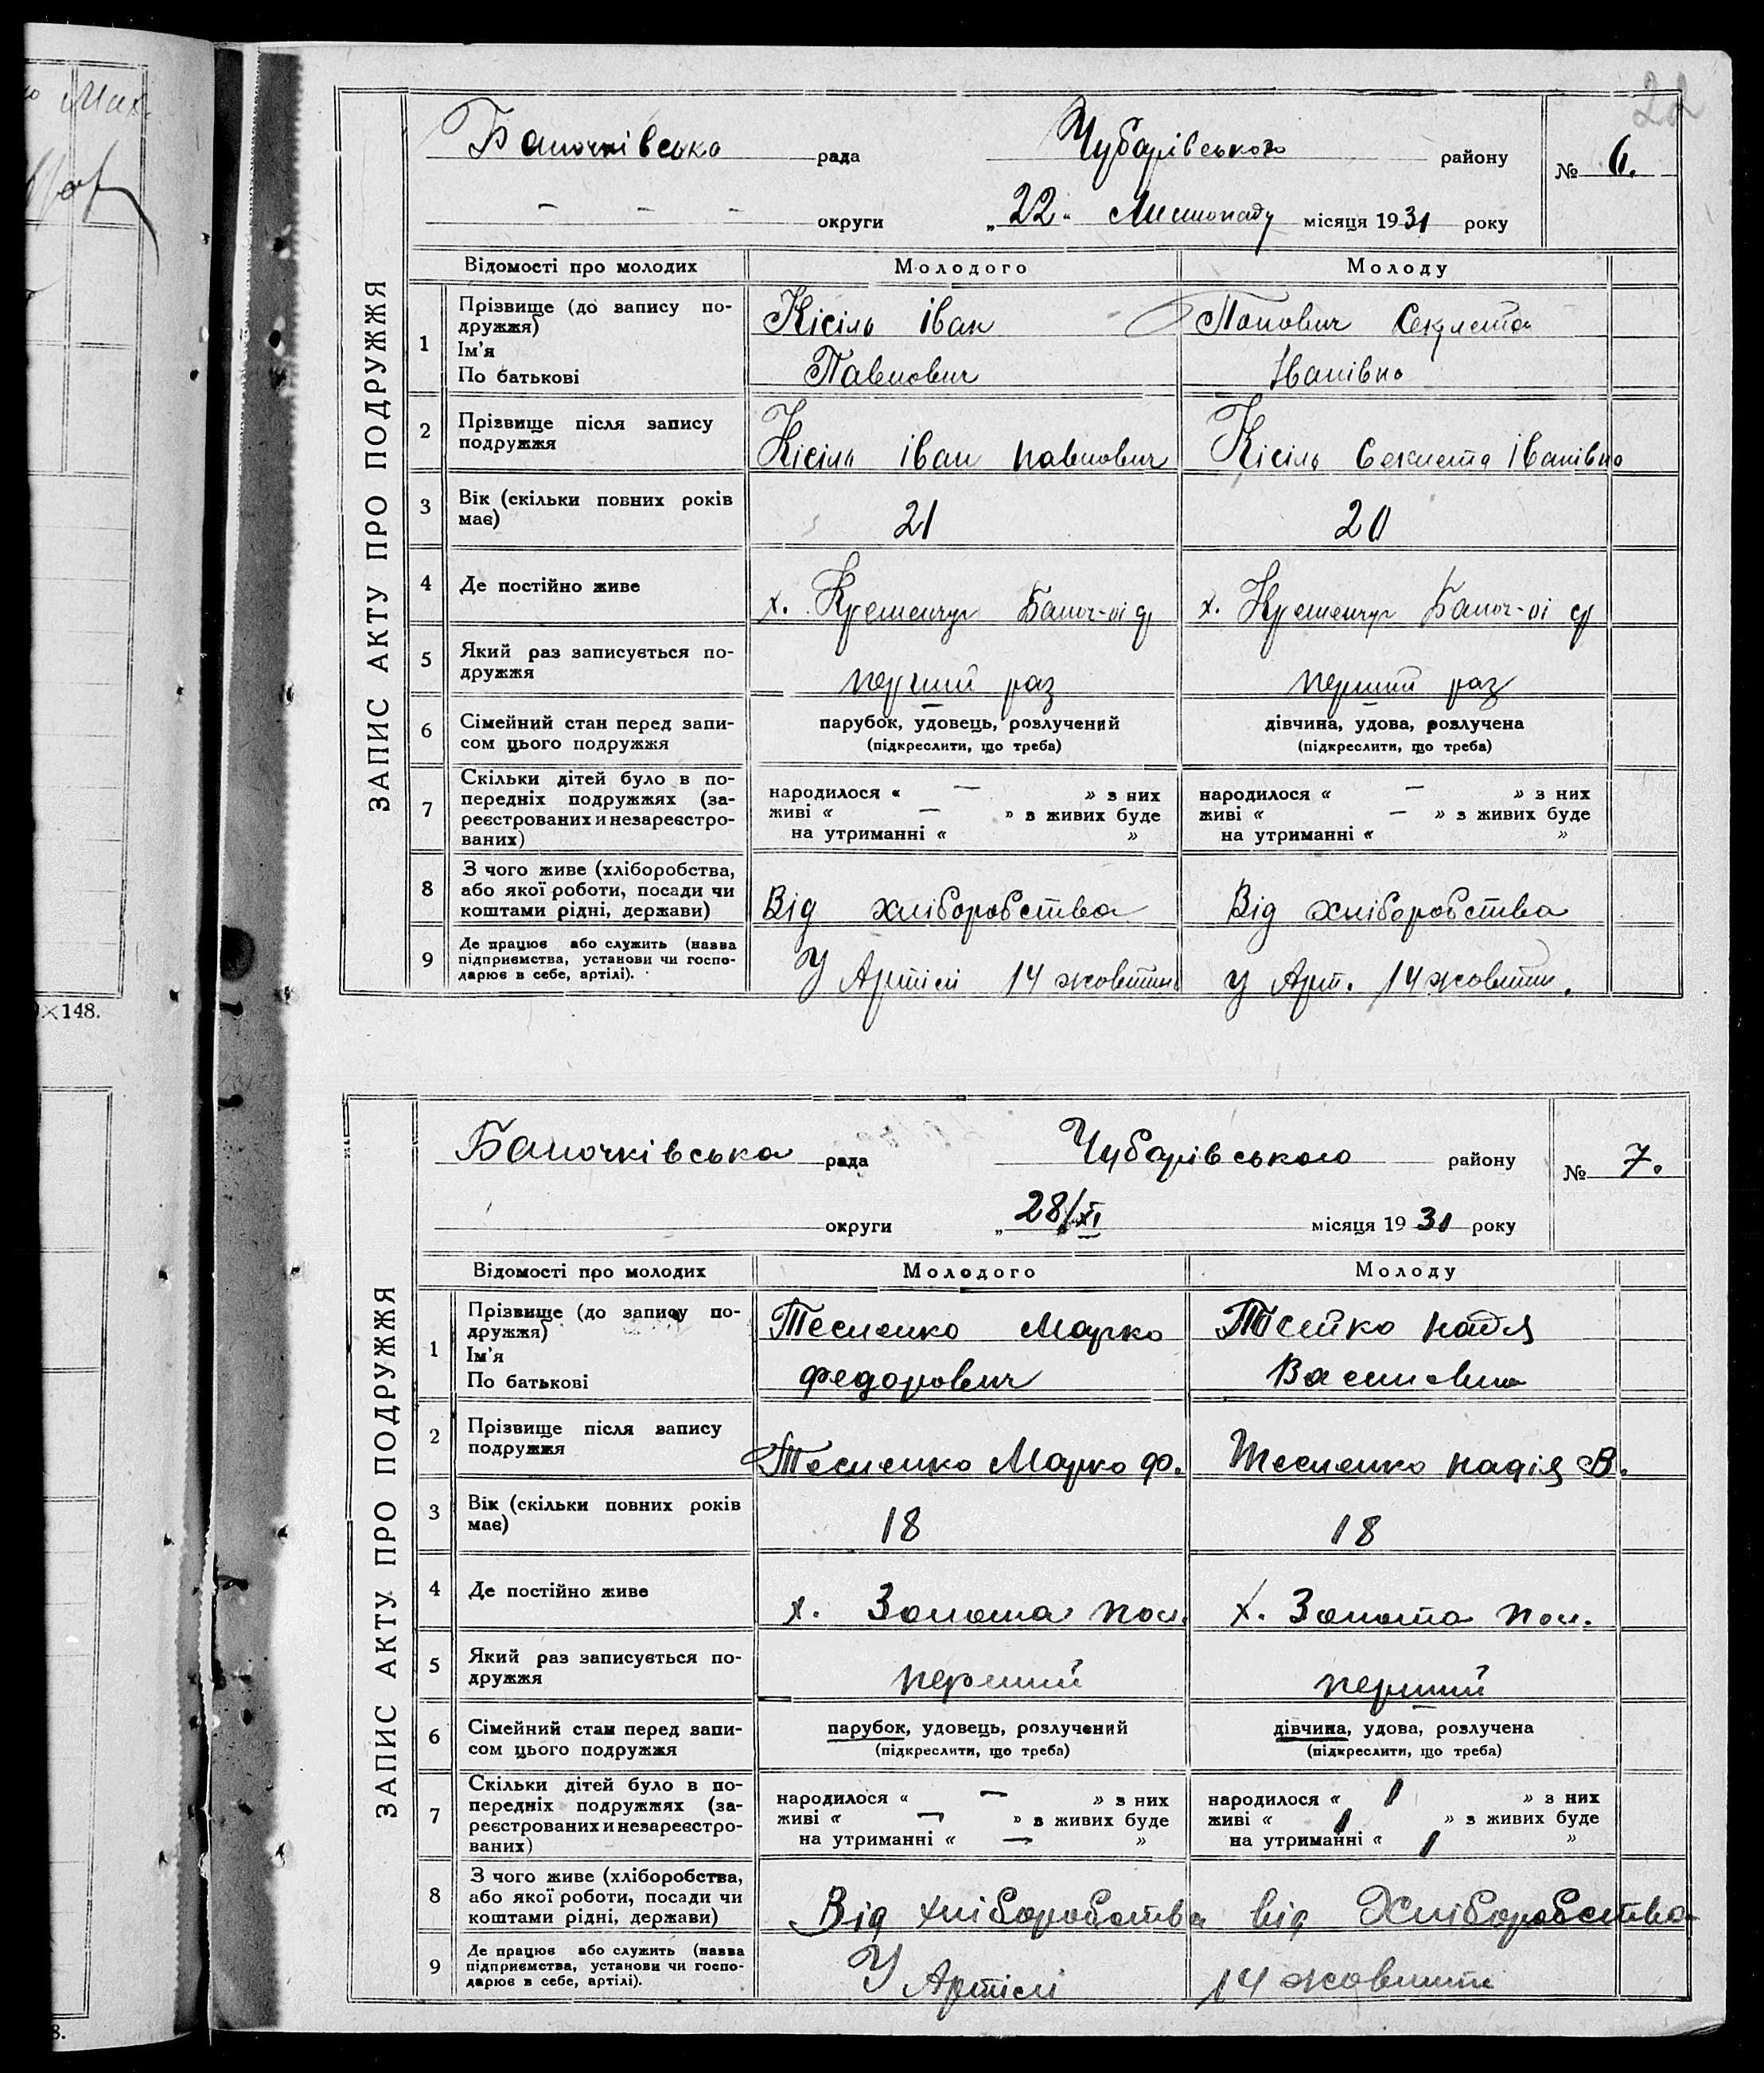 22
ЗАПИС АКТУ ПРО ПОДРУЖЖЯ
Баночківська рада Чубарівського району № 6.
округи „22" Листопаду місяця 1931 року
Відомості про молодих Молодого Молоду
1 Прізвище (до запису по-
дружжя)
Ім'я
По батькові
Кісіль Іван
Павлович
Попович Секлета
Іванівна
2 Прізвище після запису
подружжя
Кісіль Іван Павлович
Кісіль Секлета Іванівна
3 Вік (скільки повних років
має)
21
20
4 Де постійно живе
х. Кременчуг Баноч-ої
х. Кременчуг Баноч-ої
5 Який раз записується по-
дружжя
перший раз
перший раз
6 Сімейний стан перед запи-
сом цього подружжя
парубок, удовець, розлучений
(підкреслити, що треба)
дівчина, удова, розлучена
(підкреслити, що треба)
7 Скільки дітей було в по-
передніх подружжях (за-
реєстрованих и незареєстро-
ваних)
народилося « — » з них
живі « — » з живих буде
на утриманні « »
народилося « — » з них
живі « — » з живих буде
на утриманні « »
8 З чого живе (хліборобства,
або якої роботи, посади чи
коштами рідні, держави)
Від хліборобства
Від хліборобства
9 Де працює або служить (назва
підприємства, установи чи госпо-
дарює в себе, артілі).
У Артілі 14 жовтня
у Арт. 14 жовтн.
×148.
ЗАПИС АКТУ ПРО ПОДРУЖЖЯ
Баночківська рада Чубарівського району № 7.
округи „28/XI місяця 1931 року
Відомості про молодих Молодого Молоду
1 Прізвище (до запису по-
дружжя)
Ім'я
По батькові
Тесленко Марко
Федорович
Надя
Василівна
2 Прізвище після запису
подружжя
Тесленко Марко Ф.
Тесленко Надія В.
3 Вік (скільки повних років
має)
18
18
4 Де постійно живе
х. Золота пол.
х. Золота пол.
5 Який раз записується по-
дружжя
перший
перший
6 Сімейний стан перед запи-
сом цього подружжя
парубок, удовець, розлучений
(підкреслити, що треба)
дівчина, удова, розлучена
(підкреслити, що треба)
7 Скільки дітей було в по-
передніх подружжях (за-
реєстрованих и незареєстро-
ваних)
народилося « — » з них
живі « — » з живих буде
на утриманні « — »
народилося « 1 » з них
живі « 1 » з живих буде
на утриманні « 1 »
8 З чого живе (хліборобства,
або якої роботи, посади чи
коштами рідні, держави)
Від хліборобства
від Хліборобства
9 Де працює або служить (назва
підприємства, установи чи госпо-
дарює в себе, артілі).
У Артілі
14 жовтня
8.